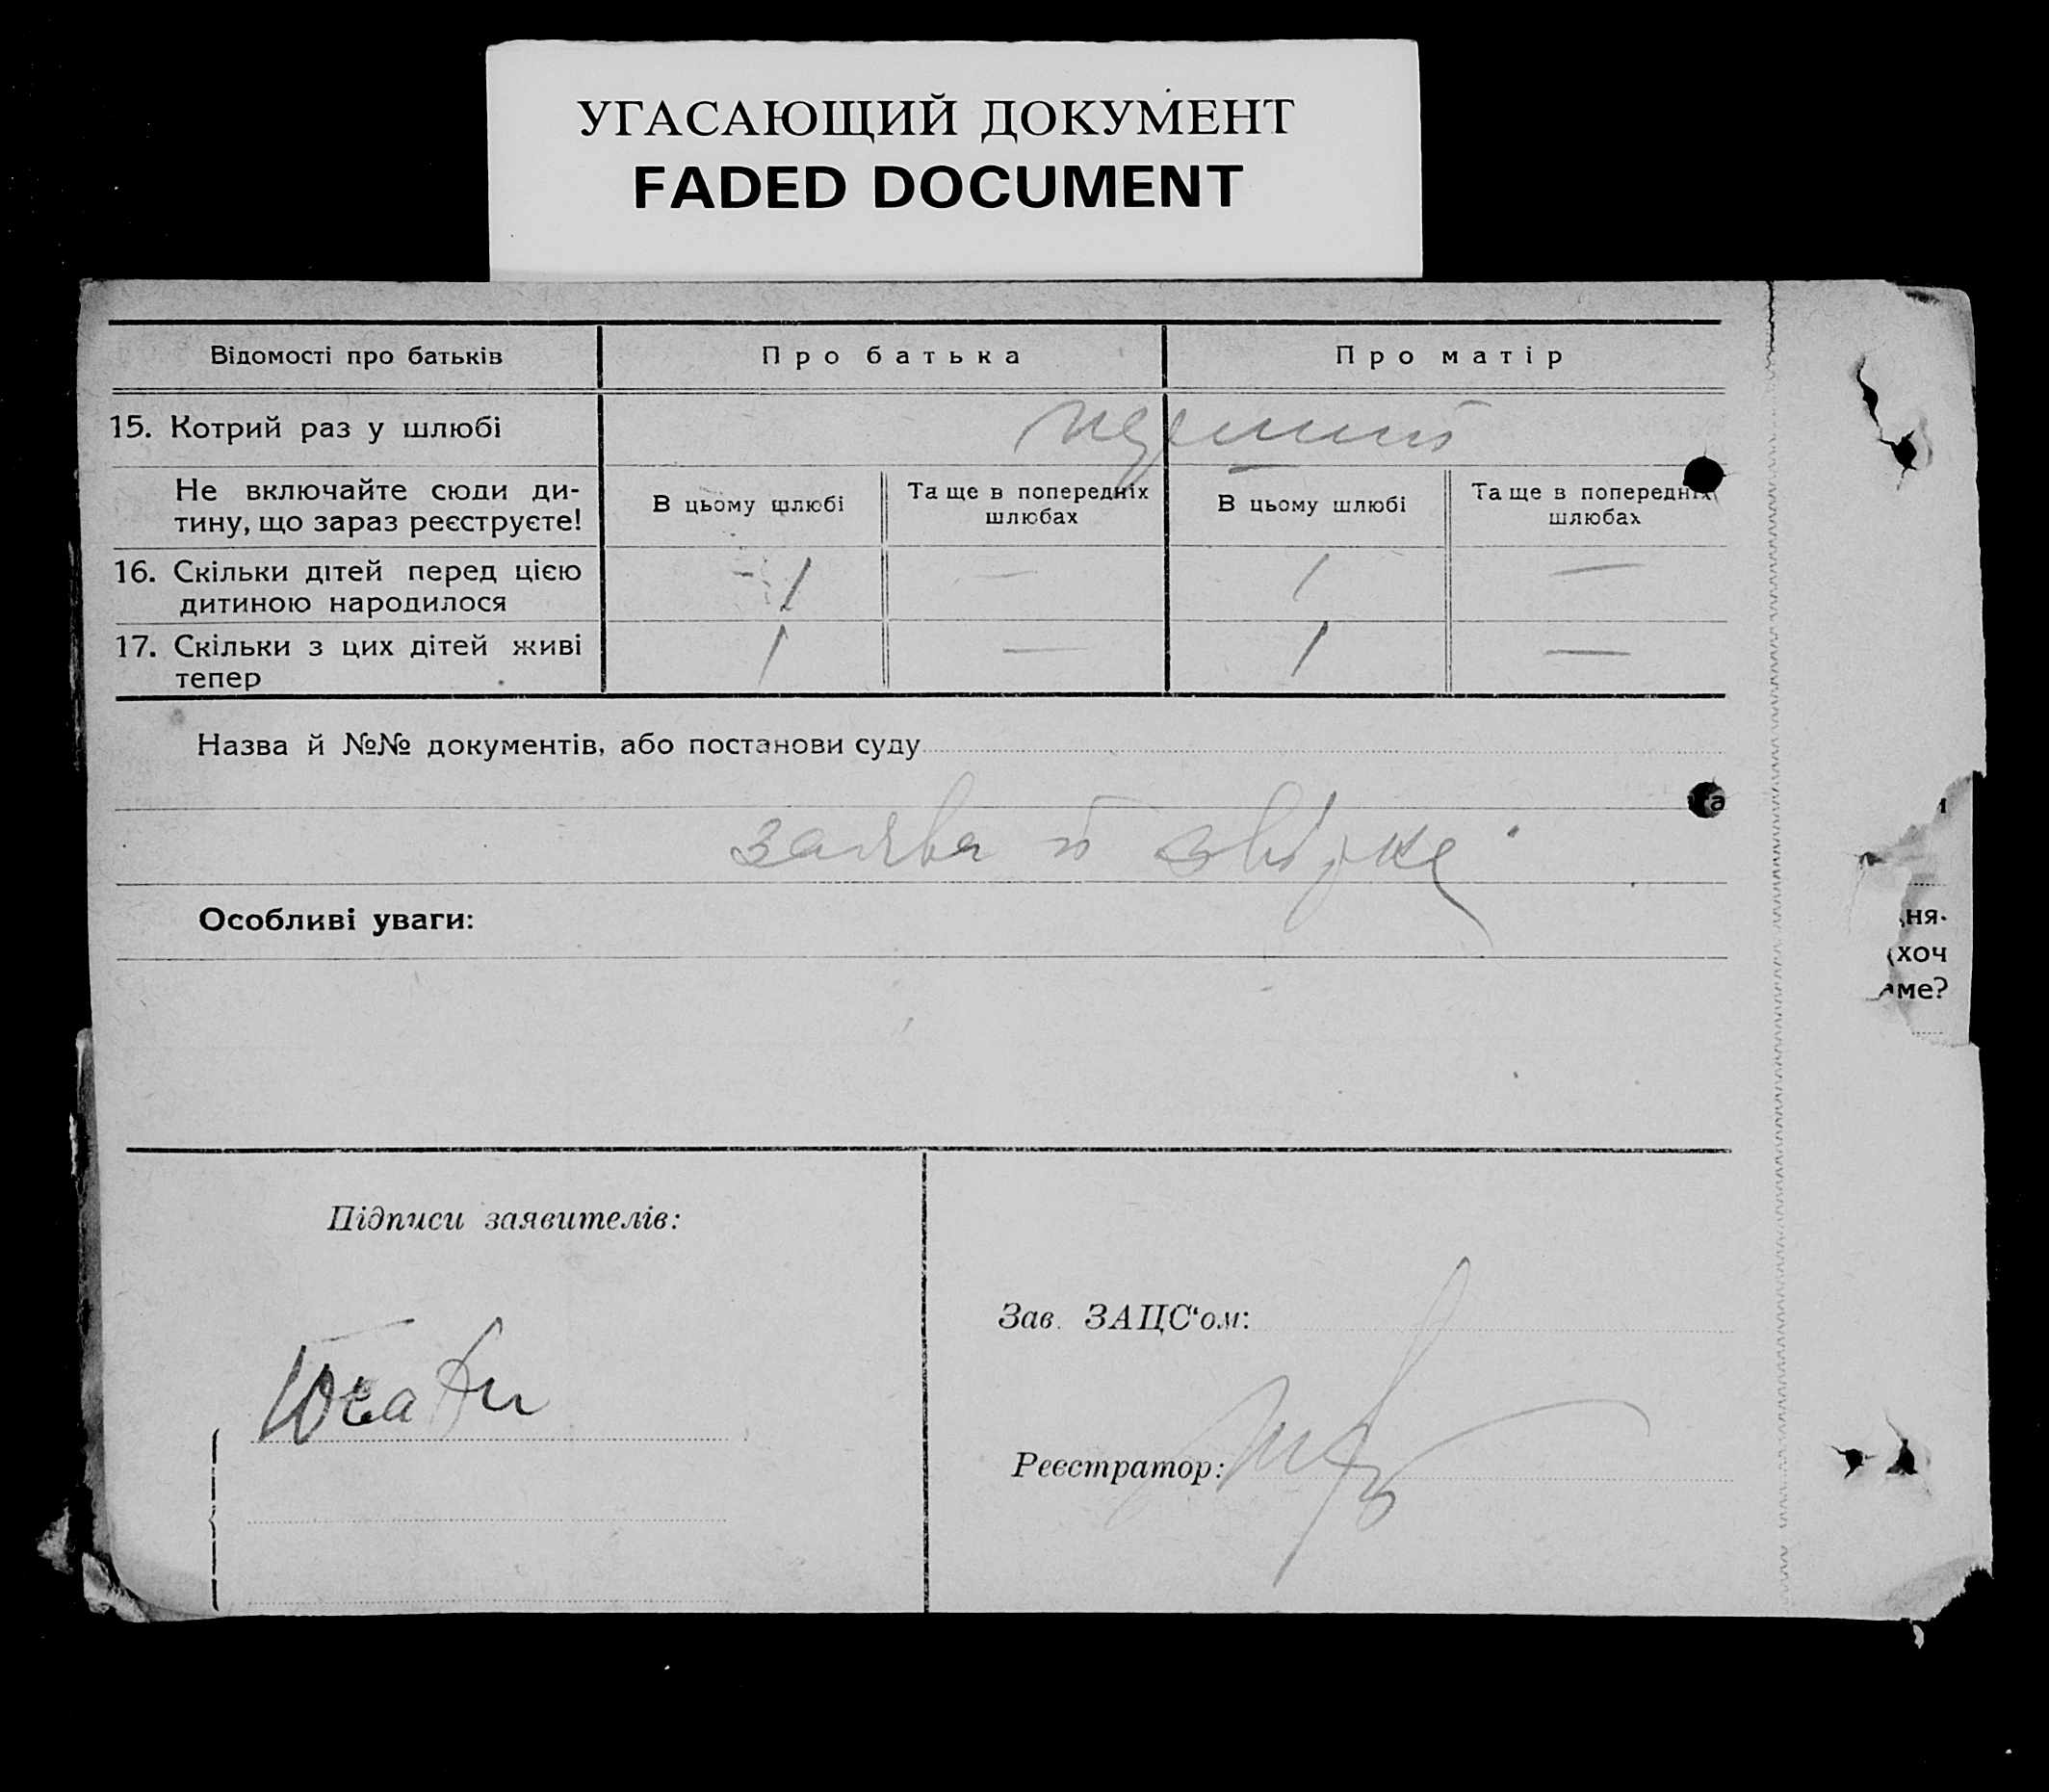 УГАСАЮЩИЙ ДОКУМЕНТ
FADED DOCUMENT
Відомості про батьків
Про батька
Про матір
15. Котрий раз у шлюбі
перший
Не включайте сюди ди-
тину, що зараз реєструєте!
В цьому шлюбі
Та ще в попередніх
шлюбах
В цьому шлюбі
Та ще в попередніх
шлюбах
16. Скільки дітей перед цією
дитиною народилося
1 — 1 —
17. Скільки з цих дітей живі
тепер
1 — 1 —
Назва й №№ документів, або постанови суду
заява й звідка
Особливі уваги:
ня-
хоч
ме?
Підписи заявителів:
Зав. ЗАЦС‘ом:
Реєстратор: